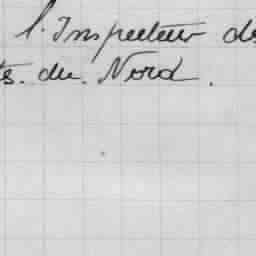 l'Inspecteur de
ts. du. Nord.